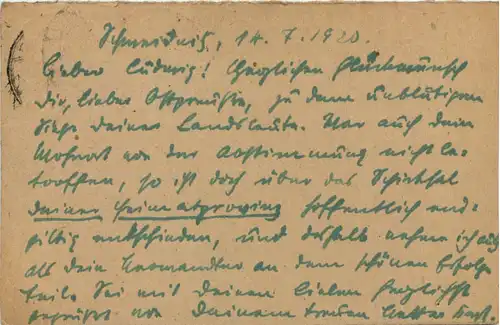 Schweidnitz, 14. 7. 1920.
Lieber Ludwig! Herzlichen Glückwunsch
Dir, lieber Ostpreuße, zu dem unblutigen
Siege Deiner Landsleute. War auch dein
Wohnort von der Abstimmung nicht be-
troffen, so ist doch über das Schicksal
deiner Heimatprovinz hoffentlich end-
gültig entschieden, und deshalb nehme ich auch
als dein Verwandter an dem schönen Erfolge
teil. Sei mit Deinen Lieben herzlichst
gegrüßt von Deinem treuen Vetter